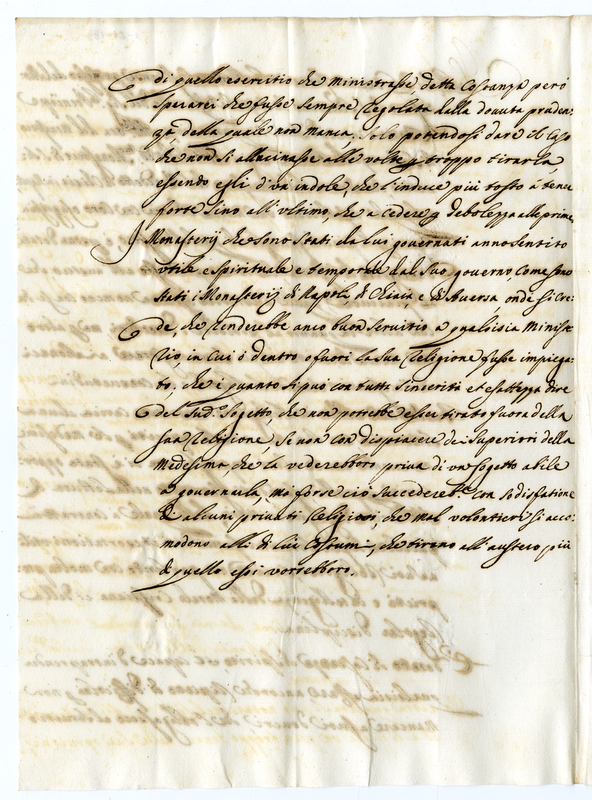 di quello esercitio che ministrasse, detta Costanza però
sperarei che fusse sempre regolata dalla dovuta pruden-
za, della quale non manca, solo potendosi dare il caso
che non si allucinasse alle volte p troppo tirarla,
essendo egli d'un indole, che l'induce più tosto à tener
forte sino all'ultimo, che a cedere p debolezza alle prime,
I Monasterij che sono stati da lui governati anno sentito
utile e spirituale e temporale dal suo governo, come sono
stati i Monasterij di Napoli, di Chiaia, e di Aversa onde si cre-
de, che renderebbe anco buon servitio a qualsisia Ministe-
rio, in cui ò dentro o fuori la sua Religione fusse impiega-
to, che è quanto si può con tutta sincerità et esattezza dire
del Sud.o Sogetto, che non potrebbe esser tirato fuora della
sua Religione, se non con dispiacere dei Superiori della
Medesima, che la vederebbero priva di un sogetto abile
a governarla, mà forse ciò succederebe con sodisfatione
di alcuni privati Religiosi, che mal volontieri si acco-
modono alli di lui Costumi, che tirano all'austero più
di quello essi vorrebbero.